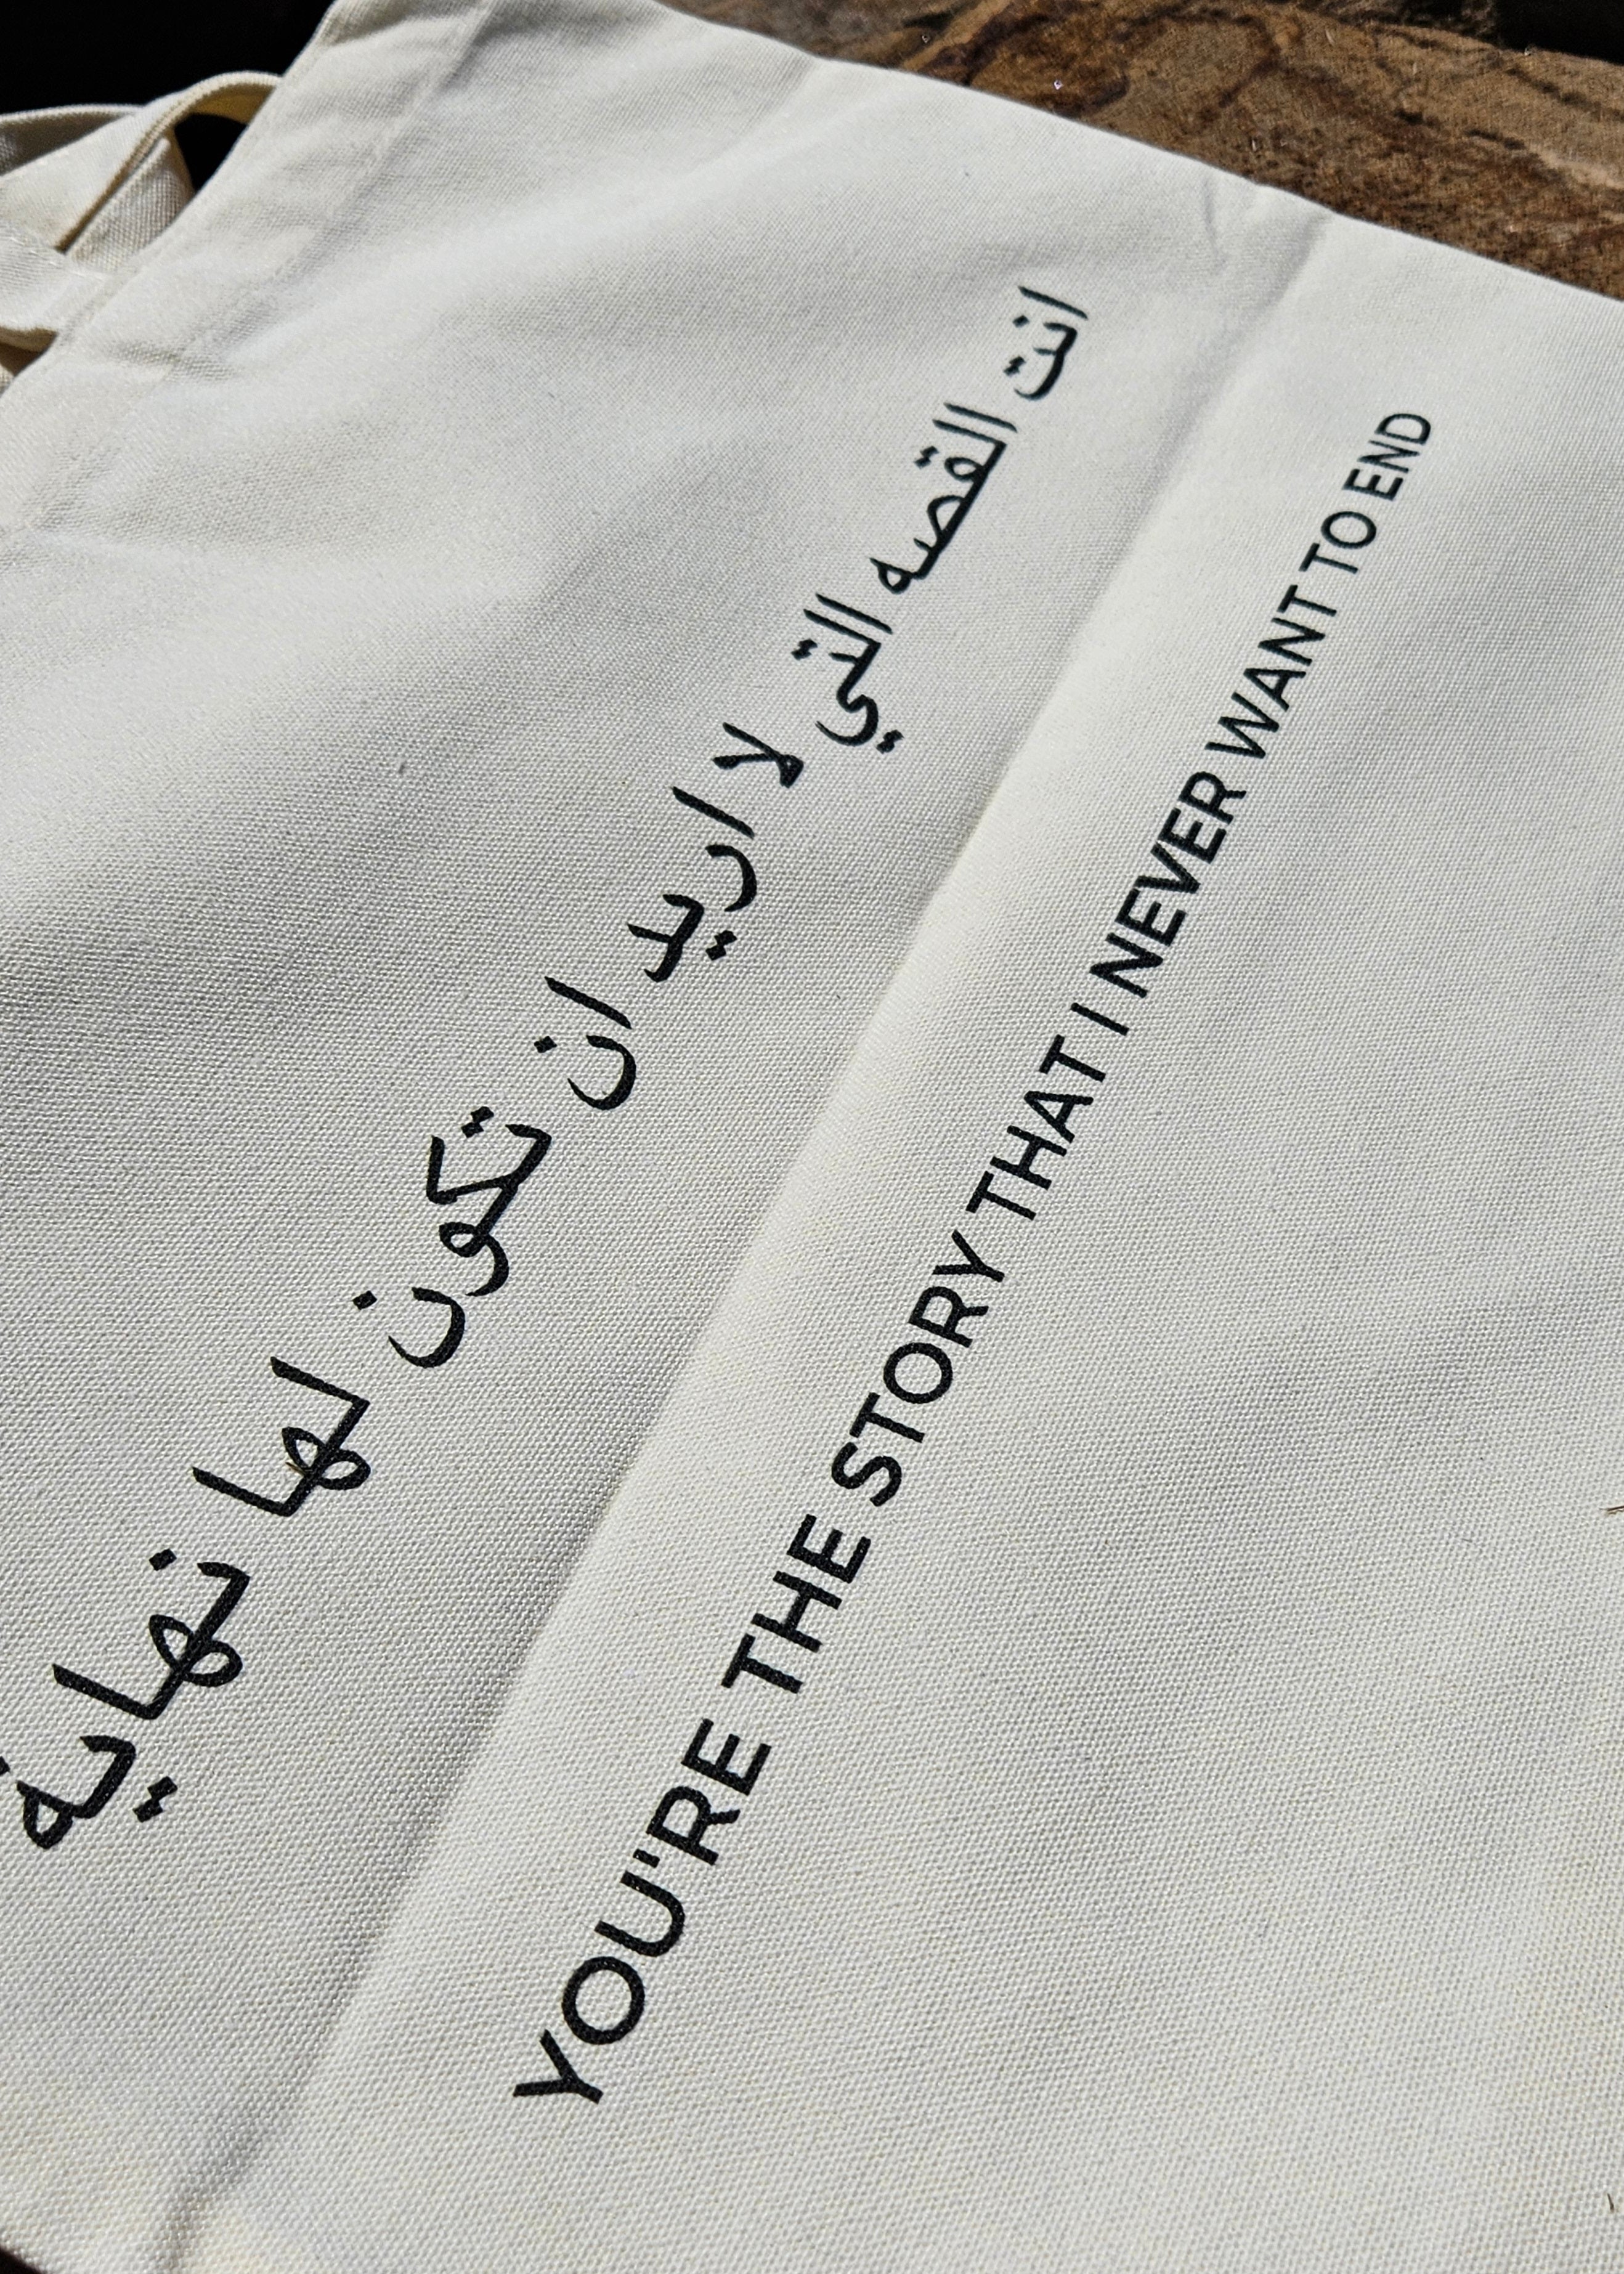 انت القصه التي لا اريد ان تكون لها نهاية
YOU'RE THE STORY THAT I NEVER WANT TO END